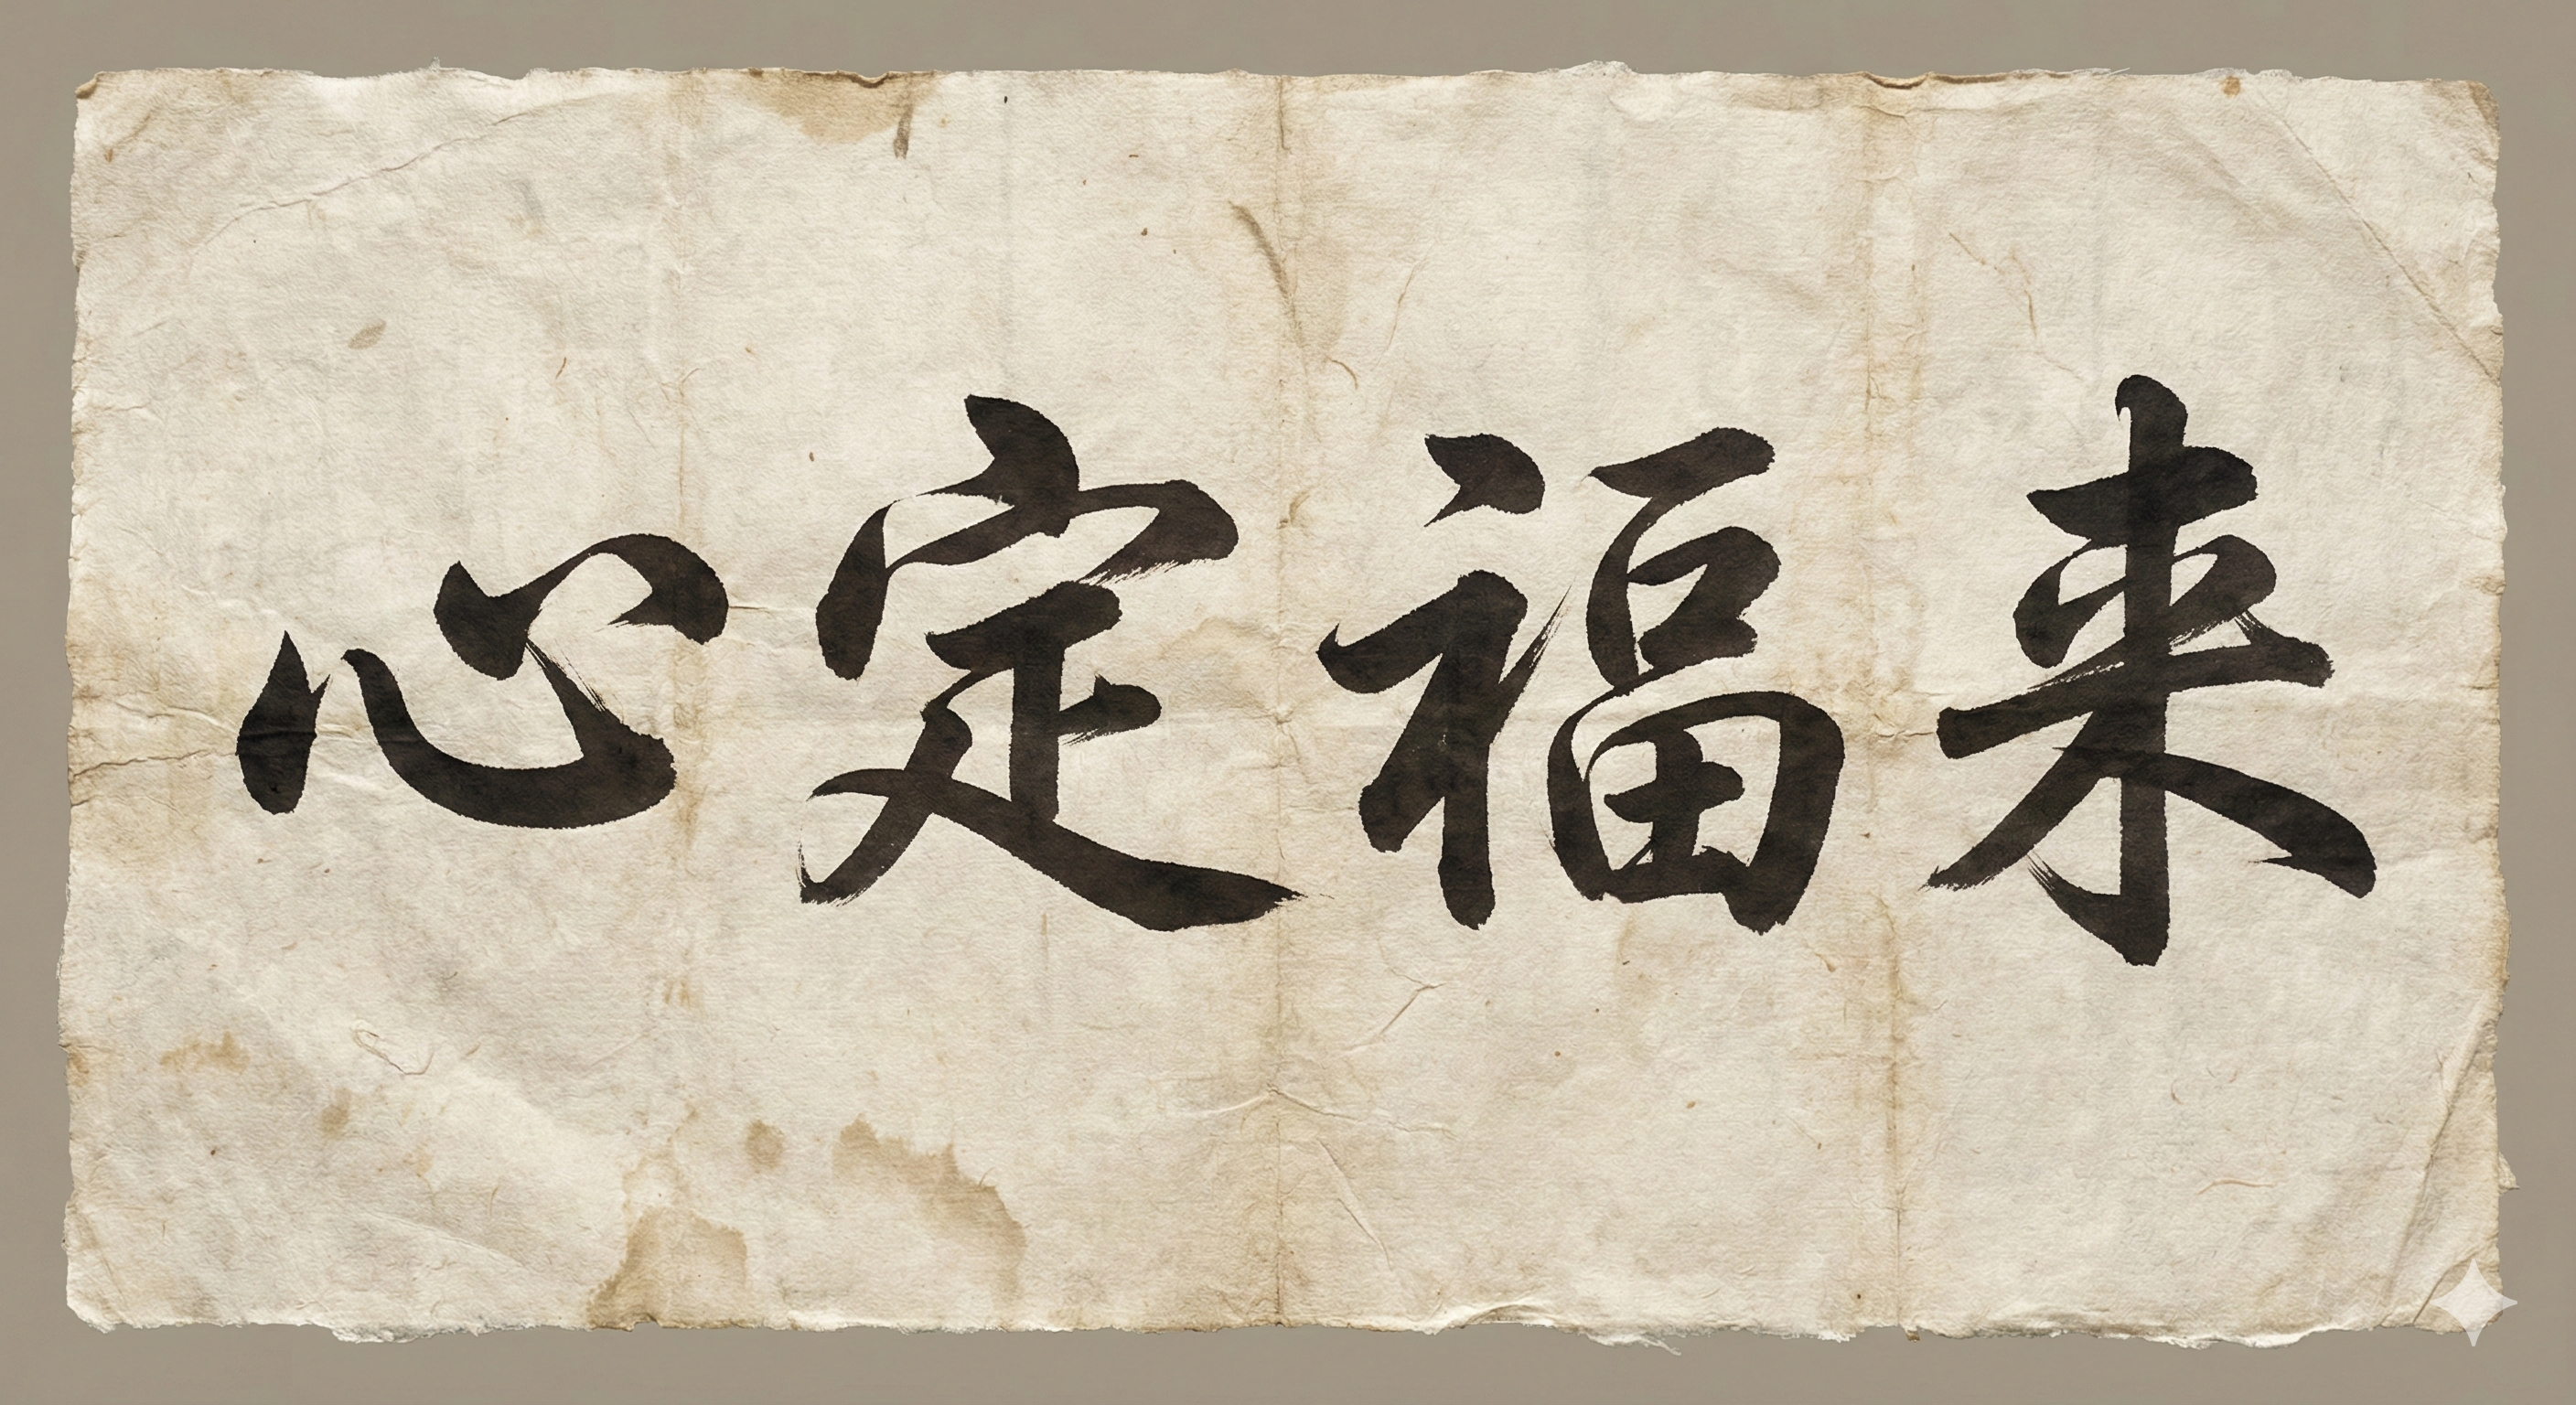 心定福来